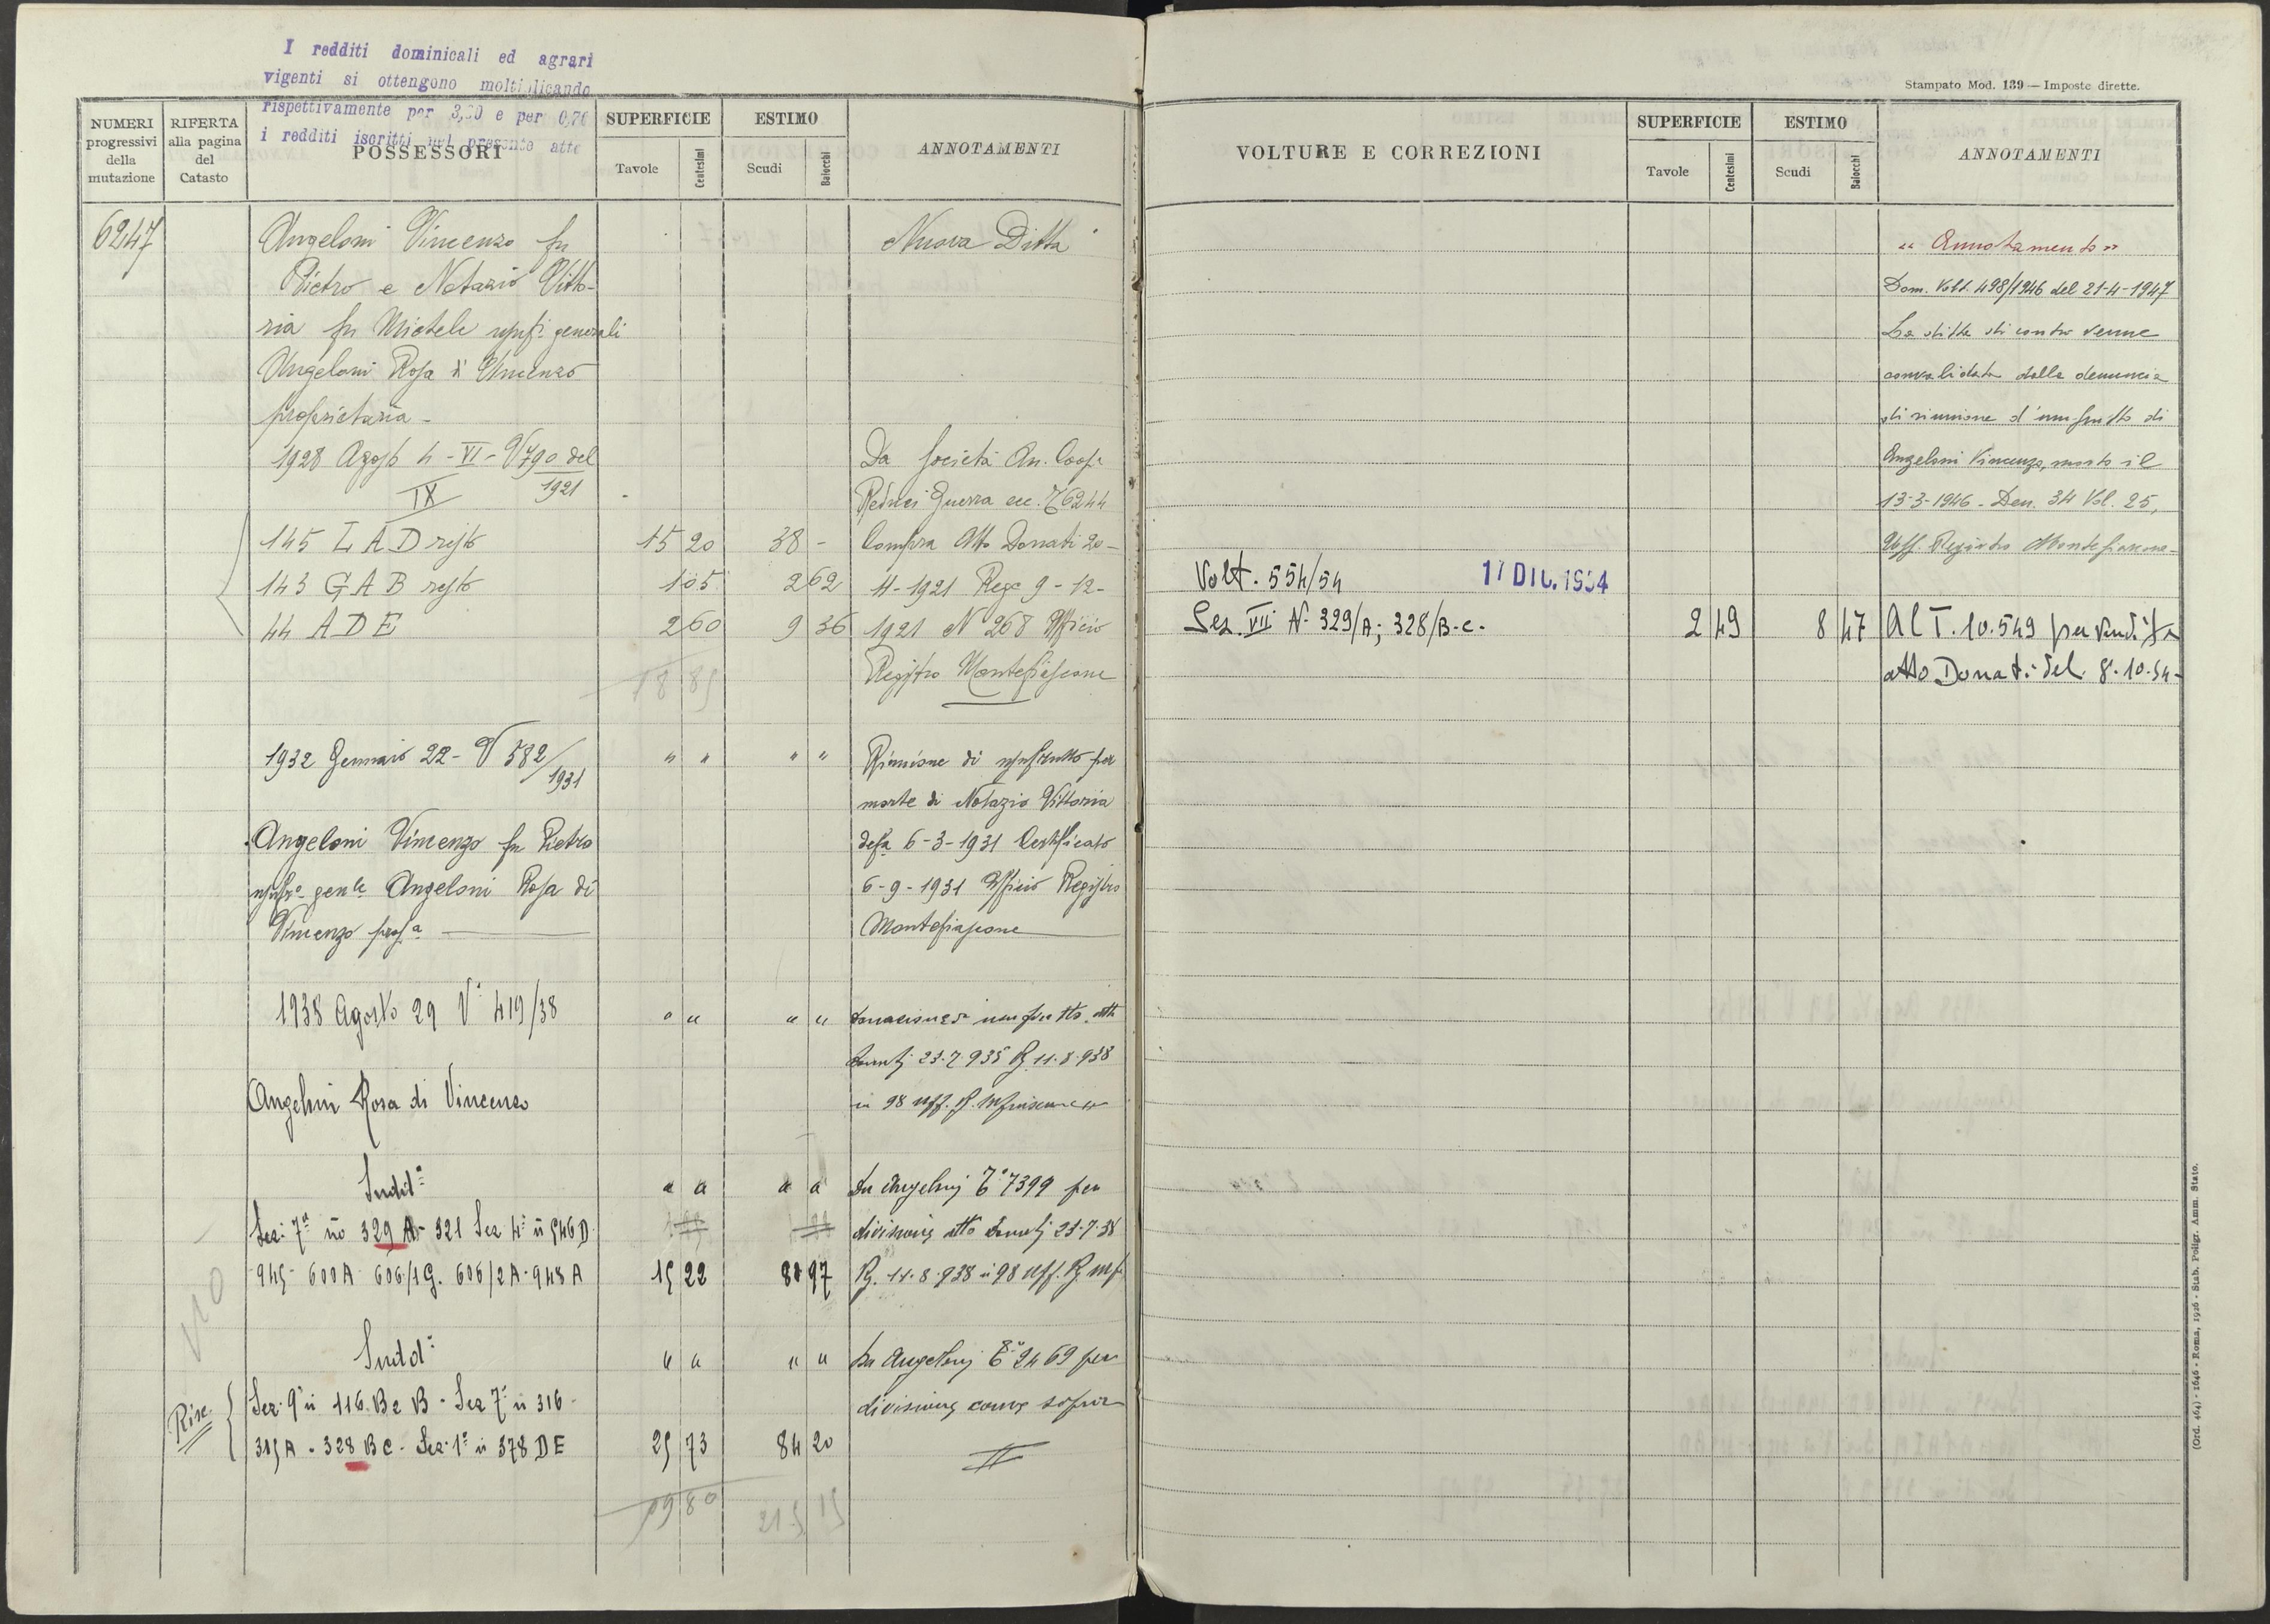 I redditi dominicali ed agrari
vigenti si ottengono moltiplicando
rispettivamente per 3,20 e per 0,76
i redditi iscritti nel presente atto
NUMERI progressivi della mutazione
RIFERTA alla pagina del Catasto
POSSESSORI
SUPERFICIE
Tavole Centesimi
ESTIMO
Scudi Baiocchi
ANNOTAMENTI
6247
Angeloni Vincenzo fu
Pietro e Notazio Vitto-
ria fu Michele usufi generali
Angeloni Rosa di Vincenzo
proprietaria -
1928 Agosto 4 - VI - V 790 del
IX 1921
145 L A D resto 15 20 38 -
143 G A B resto 1 05 2 62
44 A D E 2 60 9 36
18 85
Nuova Ditta
Da Società An. Coop.
Reduci Guerra ecc. T 6244
Compra Atto Donati 20-
4-1921 Rege 9-12-
1921 N 268 Ufficio
Registro Montefiascone
1932 Gennaio 22 - V 582/1931 " " " "
Riunione di usufrutto per
morte di Notazio Vittoria
defa 6-3-1931 Certificato
6-9-1931 Ufficio Registro
Montefiascone
Angeloni Vincenzo fu Pietro
usufro gen.le Angeloni Rosa di
Vincenzo propa
1938 Agosto 29 V° 419/38 " " " "
donazione di usufrutto atto
Donati 23-7-935 Rg 11-8-938
n 98 Uff. R.
Angeloni Rosa di Vincenzo
Sudda " " " "
Sez. 7ª no 329 A - 321 Sez 4ª n 546 D
945 - 600 A 606/1 G. 606/2 A - 948 A 15 22 80 97
Da Angeloni T° 7399 per
divisione atto Donati 23-7-38
Rg. 11-8-938 n 98 Uff. Rg Mf
Sudda " " " "
Risc. Sez. 9ª n 116 B e B - Sez 7ª n 316 -
315 A - 328 B C - Sez. 1ª n 378 D E 25 73 84 20
Da Angeloni T° 2469 per
divisione come sopra
59 80 215 15
Stampato Mod. 139 — Imposte dirette.
VOLTURE E CORREZIONI
SUPERFICIE
Tavole Centesimi
ESTIMO
Scudi Baiocchi
ANNOTAMENTI
" Annotamento "
Dom. Volt. 498/1946 del 21-4-1947
La ditta di contro venne
convalidata dalla denuncia
di riunione d'usufrutto di
Angeloni Vincenzo, morto il
13-3-1946 - Den. 34 Vol. 25,
Uff. Registro Montefiascone -
Volt. 554/54 17 DIC. 1954
Sez. VII N. 329/A; 328/B-C. 2 49 8 47
Al T. 10.549 per vendita
atto Donati del 8.10.54 -
(Ord. 464) - 1646 - Roma, 1926 - Stab. Poligr. Amm. Stato.